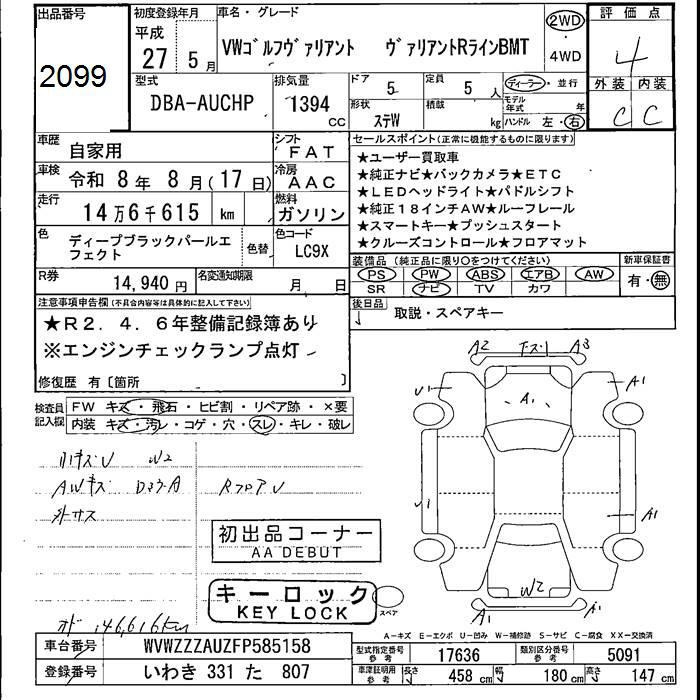 出品番号
2099
初度登録年月
平成
27 5月
車名・グレード
VWゴルフヴァリアント ヴァリアントRラインBMT
2WD
・
4WD
評価点
4
外装 内装
C C
型式
DBA-AUCHP
排気量
1394
CC
ドア
5
定員
5 人
形状
ステW
積載
kg
ディーラー・並行
モデル年式 年
ハンドル 左・右
車歴
自家用
シフト
FAT
車検
令和 8年 8月(17日)
冷房
AAC
走行
14万6千615 km
燃料
ガソリン
色
ディープブラックパールエフェクト
色替
色コード
LC9X
R券
14,940円
名変通知期限
月 日
セールスポイント(正常に機能するものに限ります)
★ユーザー買取車
★純正ナビ★バックカメラ★ETC
★LEDヘッドライト★パドルシフト
★純正18インチAW★ルーフレール
★スマートキー★プッシュスタート
★クルーズコントロール★フロアマット
装備品(純正品に限り○をつけてください)
新車保証書
PS PW ABS エアB AW
SR ナビ TV カワ
有・無
後日品
取説・スペアキー
注意事項申告欄(不具合内容等は具体的に記入して下さい)
★R2.4.6年整備記録簿あり
※エンジンチェックランプ点灯
修復歴 有〔箇所 〕
検査員記入欄
FW キズ・飛石・ヒビ割・リペア跡・×要
内装 キズ・汚レ・コゲ・穴・スレ・キレ・破レ
W2
AWキズ
RフロアU
外サス
初出品コーナー
AA DEBUT
キーロック
KEY LOCK
スペア
146,616km
A2 下ズリ A3
U1 A1
A1
U1 A1
W2
A1 A1
A-キズ E-エクボ U-凹み W-補修跡 S-サビ C-腐食 XX-交換済
車台番号
WVWZZZAUZFP585158
型式指定番号
参考
17636
類別区分番号
参考
5091
登録番号
いわき 331 た 807
車庫証明用
参考
長さ 458 cm 幅 180 cm 高さ 147 cm